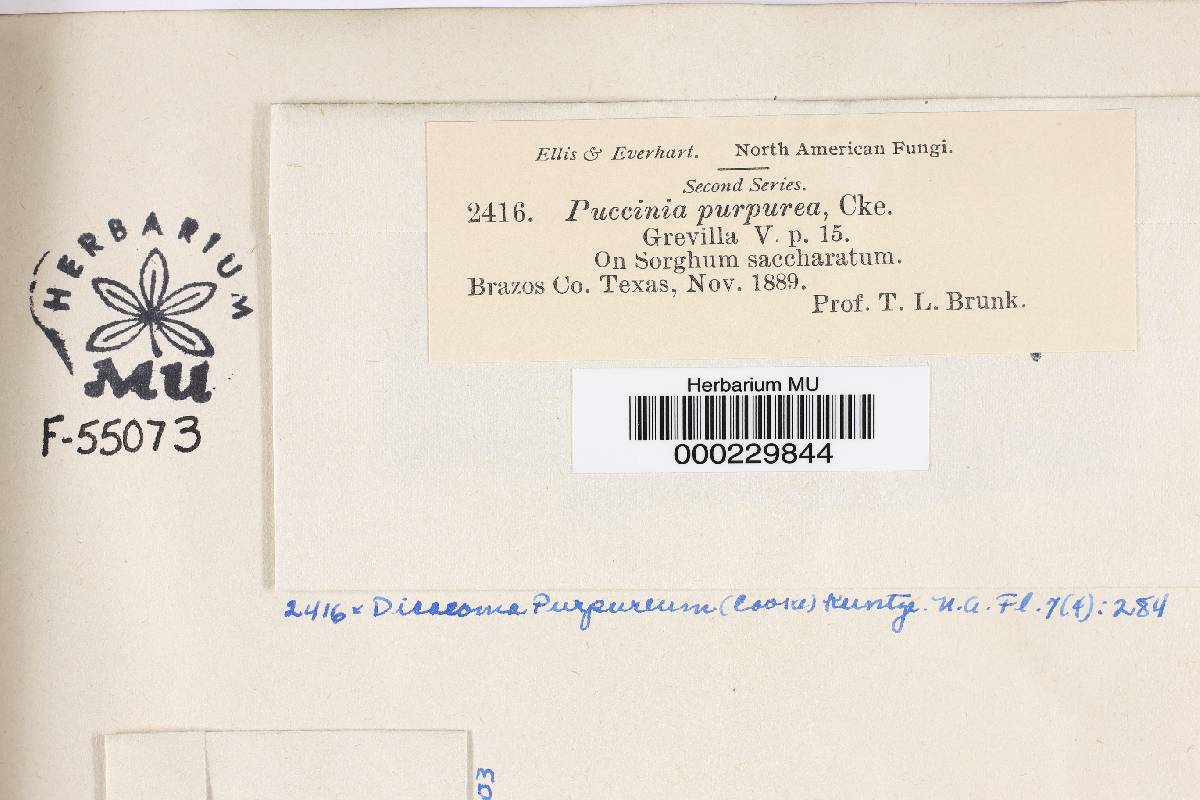 Ellis & Everhart. North American Fungi.
Second Series.
2416. Puccinia purpurea, Cke.
Grevilla V. p. 15.
On Sorghum saccharatum.
Brazos Co. Texas, Nov. 1889.
Prof. T. L. Brunk.
HERBARIUM
MU
F-55073
Herbarium MU
000229844
2416 x Dicaeoma Purpureum (Cooke) Kuntze. N.A. Fl. 7(4): 284
03